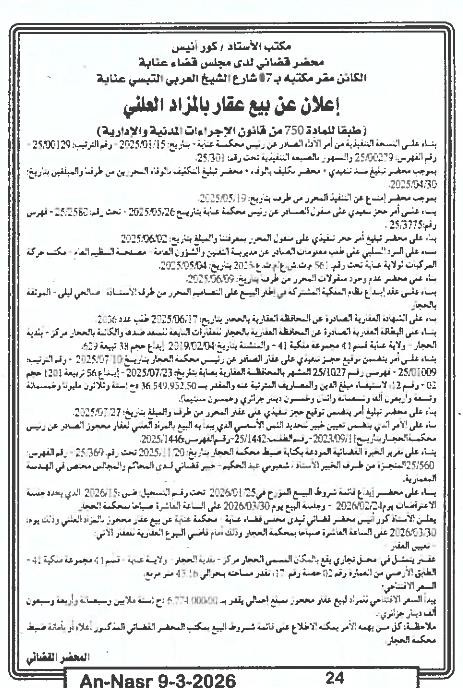 مكتب الأستاذ / كور أنيس
محضر قضائي لدى مجلس قضاء عنابة
الكائن مقر مكتبه بـ 07 شارع الشيخ العربي التبسي عنابة
إعلان عن بيع عقار بالمزاد العلني
(طبقا للمادة 750 من قانون الإجراءات المدنية والإدارية)
بناء على النسخة التنفيذية من أمر الأداء الصادر عن رئيس محكمة عنابة - بتاريخ: 2025/01/15 - رقم الترتيب: 25/00129 -
رقم الفهرس: 25/00279 والممهور بالصيغة التنفيذية تحت رقم: 25/301
بموجب محضر تبليغ سند تنفيذي + محضر تكليف بالوفاء + محضر تبليغ التكليف بالوفاء المحررين من طرفنا والمبلغين بتاريخ:
2025/04/30
بموجب محضر إمتناع عن التنفيذ المحرر من طرفنا بتاريخ: 2025/05/19
بناء على أمر حجز تنفيذي على منقول الصادر عن رئيس محكمة عنابة بتاريخ 2025/05/26 - تحت رقم: 25/2582 - فهرس
رقم: 25/3775
بناء على محضر تبليغ أمر حجز تنفيذي على منقول المحرر بمعرفتنا والمبلغ بتاريخ: 2025/06/02
بناء على الرد السلبي على طلب معلومات الصادر عن مديرية التقنين والشؤون العامة - مصلحة التنظيم العام - مكتب حركة
المركبات لولاية عنابة تحت رقم: 561 2025/05/04
بناء على محضر عدم وجود منقولات المحرر من طرفنا بتاريخ: 2025/06/09
بناء على عقد إيداع نظام الملكية المشتركة في إطار البيع على التصاميم المحرر من طرف الأستاذة - صالحي ليلى - الموثقة
بالحجار
بناء على الشهادة العقارية الصادرة عن المحافظة العقارية بالحجار بتاريخ: 2025/06/17 طلب عدد
بناء على البطاقة العقارية الصادرة عن المحافظة العقارية بالحجار للعقارات التابعة والكائنة بالحجار مركز - بلدية
الحجار - ولاية عنابة قسم 41 مجموعة ملكية 41 - والمنشئة بتاريخ: 2019/02/04 إيداع حجم 38 تبيعة 629
بناء على أمر يتضمن توقيع حجز تنفيذي على عقار الصادر عن رئيس محكمة الحجار بتاريخ: 2025/07/10 - رقم الترتيب:
25/01009 - فهرس رقم: 25/1027 المشهر بالمحافظة العقارية بعنابة بتاريخ: 2025/07/23 - إيداع 56 تربيعة 1201 حجم
02 - رقم 12) لاستيفاء مبلغ الدين والمصاريف المترتبة عنه والمقدر بـ 36.549.952,50 دج (ستة وثلاثون مليونا وخمسمائة
وتسعة وأربعون ألف وتسعمائة واثنان وخمسون دينار جزائري وخمسون سنتيما).
بناء على محضر تبليغ أمر يتضمن توقيع حجز تنفيذي على عقار المحرر من طرفنا والمبلغ بتاريخ: 2025/07/27
بناء على الأمر الذي يتضمن تعيين خبير لتحديد الثمن الأساسي الذي يبدأ به البيع بالمزاد العلني لعقار محجوز الصادر عن رئيس
محكمة الحجار بتاريخ 25/1442 - رقم الفهرس: 2025/1446
بناء على تقرير الخبرة القضائية المودعة بكتابة ضبط محكمة الحجار بتاريخ: 2025/11/20 تحت رقم: 25/369 - رقم الفهرس:
25/560 المنجزة من طرف الخبير الأستاذ / شعبوبي عبد الحكيم - خبير قضائي لدى المحاكم والمجالس مختص في الهندسة
المعمارية.
بناء على محضر إيداع قائمة شروط البيع المؤرخ في 2026/01/25 تحت رقم التسجيل: ض: 2026/15 الذي يحدد جلسة
الاعتراضات يوم 2026/02/24 - وجلسة البيع يوم 2026/03/30 على الساعة العاشرة صباحا بمحكمة الحجار
يعلن الأستاذ كور أنيس محضر قضائي لدى مجلس قضاء عنابة - محكمة عنابة عن بيع عقار محجوز بالمزاد العلني وذلك يوم:
2026/03/30 على الساعة العاشرة صباحا بمحكمة الحجار وذلك أمام قاضي البيوع العقارية للعقار الآتي:
- تعيين العقار -
عقار يتمثل في محل تجاري يقع بالمكان المسمى الحجار مركز - بلدية الحجار - ولاية عنابة - قسم 41 مجموعة ملكية 41 -
الطابق الأرضي من العمارة رقم 02 حصة رقم 17، تقدر مساحته بحوالي 43.16 متر مربع.
- السعر الافتتاحي -
يبدأ السعر الافتتاحي للمزاد لبيع عقار محجوز بمبلغ إجمالي يقدر بـ 6.774.000,00 دج (ستة ملايين وسبعمائة وأربعة وسبعون
ألف دينار جزائري).
ملاحظة: كل من يهمه الأمر يمكنه الاطلاع على قائمة شروط البيع بمكتب المحضر القضائي المذكور أعلاه أو بأمانة ضبط
محكمة الحجار.
المحضر القضائي
An-Nasr 9-3-2026
24